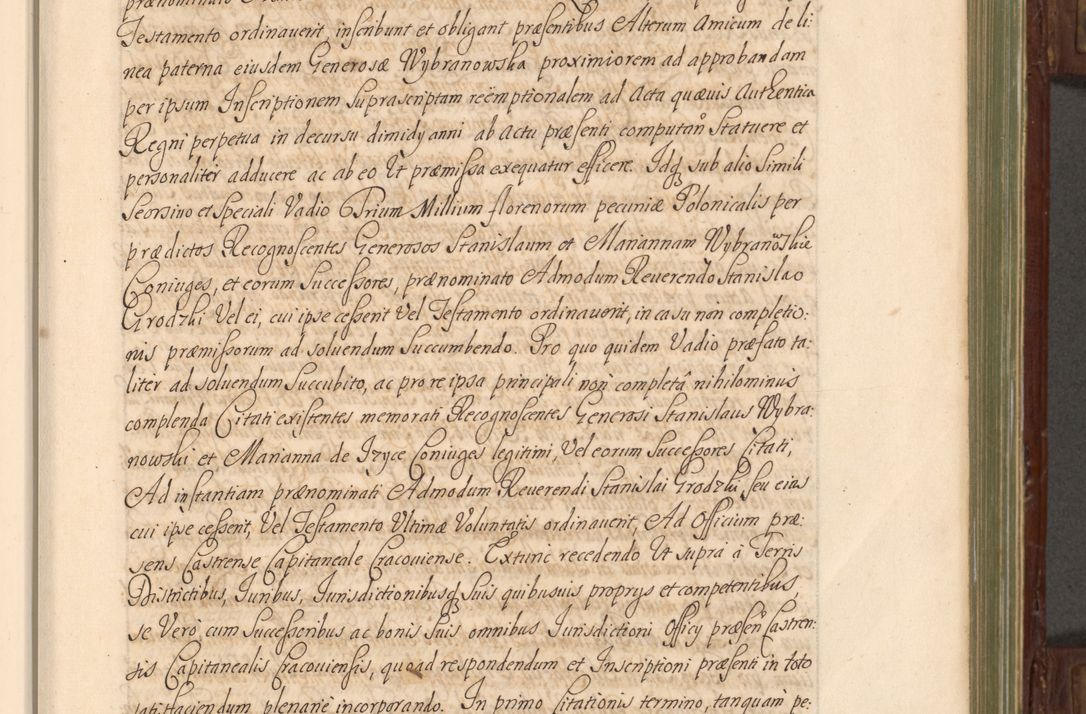 Testamento ordinauerit, inscribunt et obligant præsentibus Alterum Amicum de li:
nea paterna eiusdem Generosæ Wybranowska proximiorem ad approbandam
per ipsum Inscriptionem suprascriptam reëmptionalem ad Acta quæuis Authentica
Regni perpetua in decursu dimidy anni ab actu præsenti computan statuere et
personaliter adducere ac ab eo Ut præmissa exequatur efficere. Idq sub alio simili
seorsiuo et speciali Vadio Trium Millium florenorum pecuniæ Polonicalis per
prædictos Recognoscentes Generosos Stanislaum et Mariannam Wybranowskie
Coniuges, et eorum Successores, prænominato Admodum Reuerendo Stanislao
Grodzki Vel ei, cui ipse cesserit Vel Testamento ordinauerit, in casu non completio:
nis præmissorum ad soluendum succumbendo. Pro quo quidem Vadio præfato ta:
liter ad soluendum succubito, ac pro re ipsa principali non completâ nihilominus
complenda Citati existentes memorati Recognoscentes Generosi Stanislaus Wybra:
nowski et Marianna de Izyce Coniuges legitimi, Vel eorum Successores Citati,
Ad instantiam prænominati Admodum Reuerendi Stanislai Grodzki, seu eius
cui ipse cesserit, Vel Testamento Ultimæ Voluntatis ordinauerit, Ad Officium præ:
sens Castrense Capitaneale Cracouiense. Extunc recedendo Ut supra à Terris
Districtibus, Iuribus, Iurisdictionibusq suis quibusuis proprys et competentibus,
se Vero cum Successoribus ac bonis suis omnibus Iurisdictioni Officy præsen Castren:
sis Capitanealis Cracouiensis, quoad respondendum et Inscriptioni præsenti in toto
satisfaciendum plenariè incorporando. In primo Citationis termino, tanquam pe: